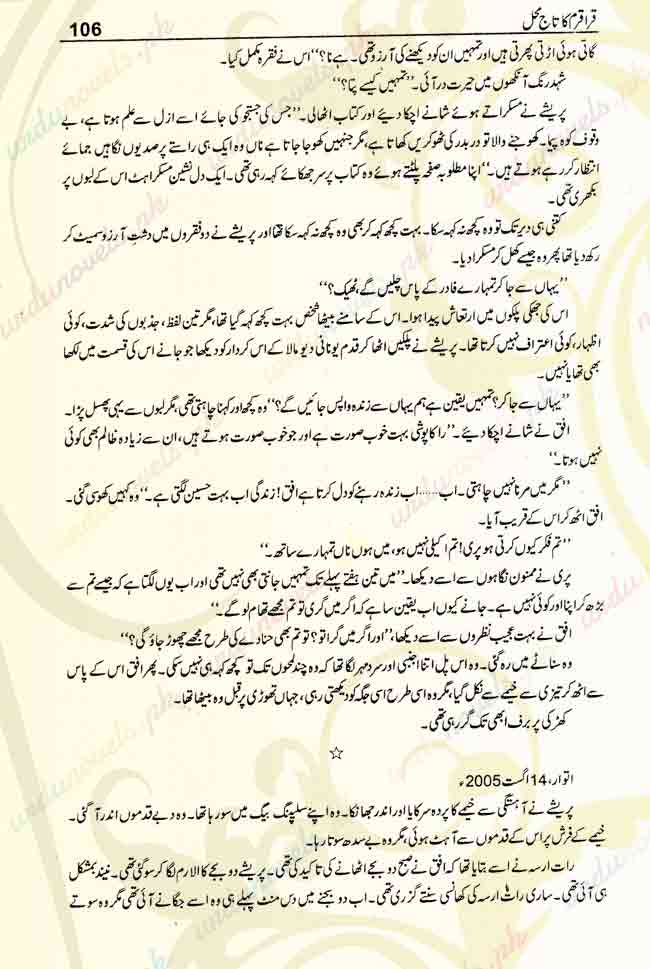 106
قراقرم کا تاج محل
گاتی ہوئی اڑتی پھرتی ہیں اور تمہیں ان کو دیکھنے کی آرزو تھی۔ ہے نا؟‘‘ اس نے فقرہ مکمل کیا۔
شہد رنگ آنکھوں میں حیرت در آئی۔ ’’تمہیں کیسے پتا؟‘‘
پریشے نے مسکراتے ہوئے شانے اچکا دیے اور کتاب اٹھالی۔ ’’جس کی جستجو کی جائے اسے ازل سے علم ہوتا ہے، بے
وقوف کوہ پیما۔ کھوجنے والا تو در بدر کی ٹھوکریں کھاتا ہے، مگر جنہیں کھوجا جاتا ہے ناں وہ ایک ہی راستے پر صدیوں نگاہیں جمائے
انتظار کر رہے ہوتے ہیں۔‘‘ اپنا مطلوبہ صفحہ پلٹتے ہوئے وہ کتاب پر سر جھکائے کہہ رہی تھی۔ ایک دل نشین مسکراہٹ اس کے لبوں پر
بکھری تھی۔
کتنی ہی دیر تک تو وہ کچھ نہ کہہ سکا۔ بہت کچھ کہہ کر بھی وہ کچھ نہ کہہ سکا تھا اور پریشے نے دو فقروں میں دشتِ آرزو سمیٹ کر
رکھ دیا تھا پھر وہ جیسے کھل کر مسکرا دیا۔
’’یہاں سے جا کر تمہارے فادر کے پاس چلیں گے، ٹھیک؟‘‘
اس کی جھکی پلکوں میں ارتعاش پیدا ہوا۔ اس کے سامنے بیٹھا شخص بہت کچھ کہہ گیا تھا، مگر تین لفظ، جذبوں کی شدت، کوئی
اظہار، کوئی اعتراف نہیں کرتا تھا۔ پریشے نے پلکیں اٹھا کر قدیم یونانی دیو مالا کے اس کردار کو دیکھا جو جانے اس کی قسمت میں لکھا
بھی تھا یا نہیں۔
’’یہاں سے جا کر؟ تمہیں یقین ہے ہم یہاں سے زندہ واپس جائیں گے؟‘‘ وہ کچھ اور کہنا چاہتی تھی، مگر لبوں سے یہی پھسل پڑا۔
افق نے شانے اچکا دیے۔ ’’راکاپوشی بہت خوب صورت ہے اور جو خوب صورت ہوتے ہیں، ان سے زیادہ ظالم بھی کوئی
نہیں ہوتا۔‘‘
’’مگر میں مرنا نہیں چاہتی۔ اب...... اب زندہ رہنے کو دل کرتا ہے افق! زندگی اب بہت حسین لگتی ہے۔‘‘ وہ کہیں کھو سی گئی۔
افق اٹھ کر اس کے قریب آیا۔
’’تم فکر کیوں کرتی ہو پری! تم اکیلی نہیں ہو، میں ہوں ناں تمہارے ساتھ۔‘‘
پری نے ممنون نگاہوں سے اسے دیکھا۔ ’’میں تین ہفتے پہلے تک تمہیں جانتی بھی نہیں تھی اور اب یوں لگتا ہے کہ جیسے تم سے
بڑھ کر اپنا اور کوئی نہیں ہے۔ جانے کیوں اب یقین سا ہے کہ اگر میں گری تو تم مجھے تھام لو گے۔‘‘
افق نے بہت عجیب نظروں سے اسے دیکھا، ’’اور اگر میں گرا تو؟ تو تم بھی حنادے کی طرح مجھے چھوڑ جاؤ گی؟‘‘
وہ سناٹے میں رہ گئی۔ وہ اس پل اتنا اجنبی اور سرد مہر لگا تھا کہ وہ چند لمحوں تک تو کچھ کہہ ہی نہیں سکی۔ پھر افق اس کے پاس
سے اٹھ کر تیزی سے خیمے سے نکل گیا، مگر وہ اسی طرح اسی جگہ کو دیکھتی رہی، جہاں تھوڑی پر قبل وہ بیٹھا تھا۔
کھڑکی پر برف ابھی تک گر رہی تھی۔
☆
اتوار، 14 اگست 2005ء
پریشے نے آہستگی سے خیمے کا پردہ سرکایا اور اندر جھانکا۔ وہ اپنے سلیپنگ بیگ میں سو رہا تھا۔ وہ دبے قدموں اندر آ گئی۔
خیمے کے فرش پر اس کے قدموں سے آہٹ ہوئی، مگر وہ بے سدھ سوتا رہا۔
رات ارسہ نے اسے بتایا تھا کہ افق نے صبح دو بجے اٹھانے کی تاکید کی تھی۔ پریشے دو بجے کا الارم لگا کر سو گئی تھی۔ نیند بمشکل
ہی آئی تھی۔ ساری رات ارسہ کی کھانسی سنتے گزری تھی۔ اب دو بجنے میں دس منٹ پہلے ہی وہ اسے جگانے آئی تھی مگر وہ سوتے